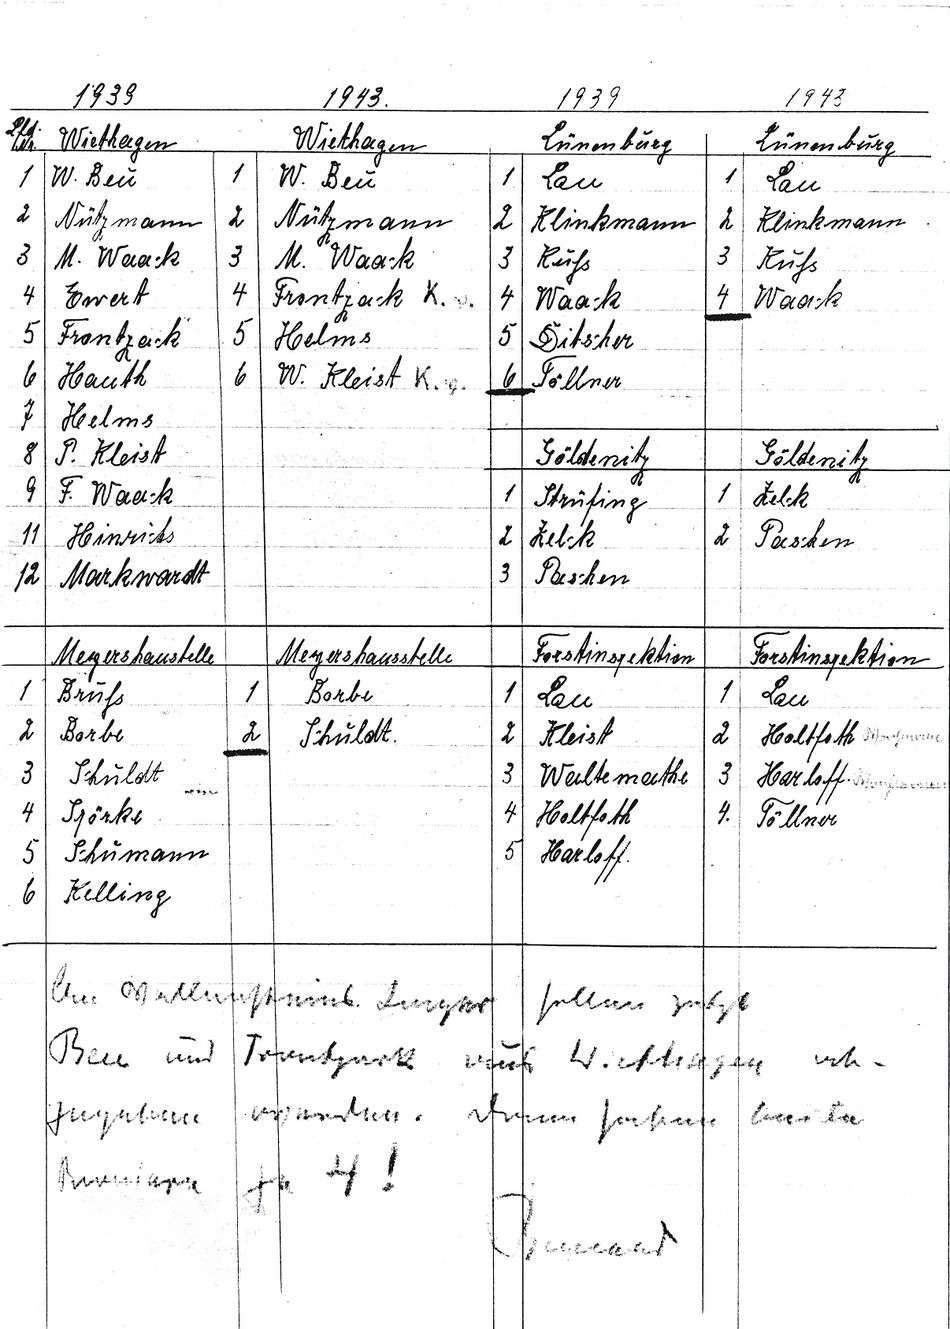 1939 1943. 1939 1943
Lfd. Nr. Wiethagen Wiethagen Lünenburg Lünenburg
1 W. Beu 1 W. Beu 1 Lau 1 Lau
2 Nützmann 2 Nützmann 2 Klinkmann 2 Klinkmann
3 M. Waack 3 M. Waack 3 Kuſs 3 Kuſs
4 Ewert 4 Frontzack K. 4 Waack 4 Waack
5 Frontzack 5 Helms 5 Ditscher
6 Hauth 6 W. Kleist K. 6 Töllner
7 Helms
8 P. Kleist Göldenitz Göldenitz
9 F. Waack 1 Strüfing 1 Zelck
11 Hinrichs 2 Zelck 2 Paschen
12 Markwardt 3 Paschen
Meyershaustelle Meyershausstelle Forstinspektion Forstinspektion
1 Bruſs 1 Borbe 1 Lau 1 Lau
2 Borbe 2 Schuldt. 2 Kleist 2 Holtfoth
3 Schuldt 3 Waltemathe 3 Harloff
4 Spörke 4 Holtfoth 4. Töllner
5 Schumann 5 Harloff.
6 Kelling
An sollen jetzt
Beu und Frontzack aus Wiethagen ab-
gegeben werden. Dann haben beide
Reviere je 4!